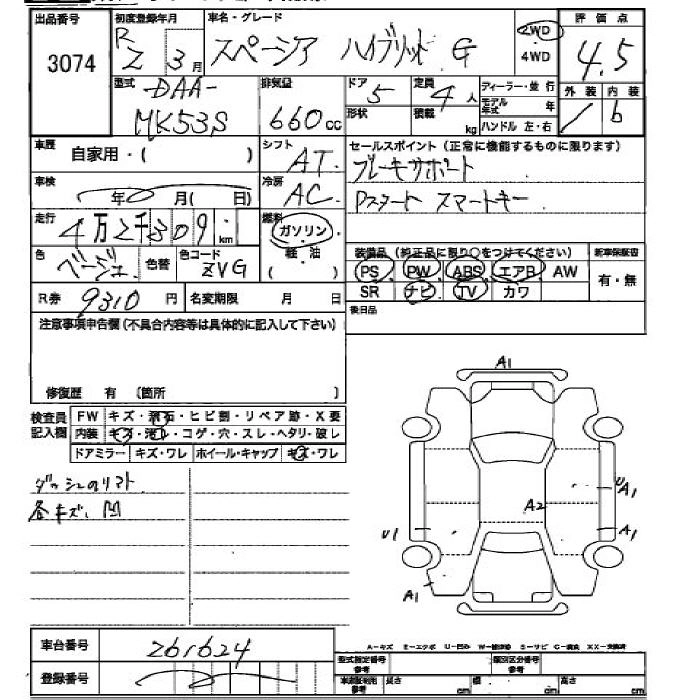 出品番号 初度登録年月 車名・グレード 評価点
3074 R2 3月 スペーシア ハイブリッド G 2WD 4WD 4.5
型式 DAA-MK53S 排気量 660cc ドア 5 形状 定員 4人 積載 kg ディーラー・並行 モデル年式 年 ハンドル 左・右 外装 内装 b
車歴 自家用・( ) シフト AT. セールスポイント(正常に機能するものに限ります)
ブレーキサポート
車検 年 月( 日) 冷房 AC Pスタート スマートキー
走行 4万2千309 km 燃料 ガソリン・軽・油( )
色 ベージュ 色替 色コード ZVG 装備品(純正品に限り○をつけてください) 新車保証書
PS PW ABS エアB AW 有・無
SR ナビ TV カワ
R券 9310円 名変期限 月 日 後日品
注意事項申告欄(不具合内容等は具体的に記入して下さい)
修復歴 有 〔箇所 〕
検査員記入欄 FW キズ・飛石・ヒビ割・リペア跡・X要
内装 キズ・汚レ・コゲ・穴・スレ・ヘタリ・破レ
ドアミラー キズ・ワレ ホイール・キャップ キズ・ワレ
各キズ、凹
A1
A2
U A1
U1
A1
A1
車台番号 261624
登録番号
A-キズ E-エクボ U-凹み
型式指定番号 参考 類別区分番号 参考
長さ cm 幅 cm 高さ cm